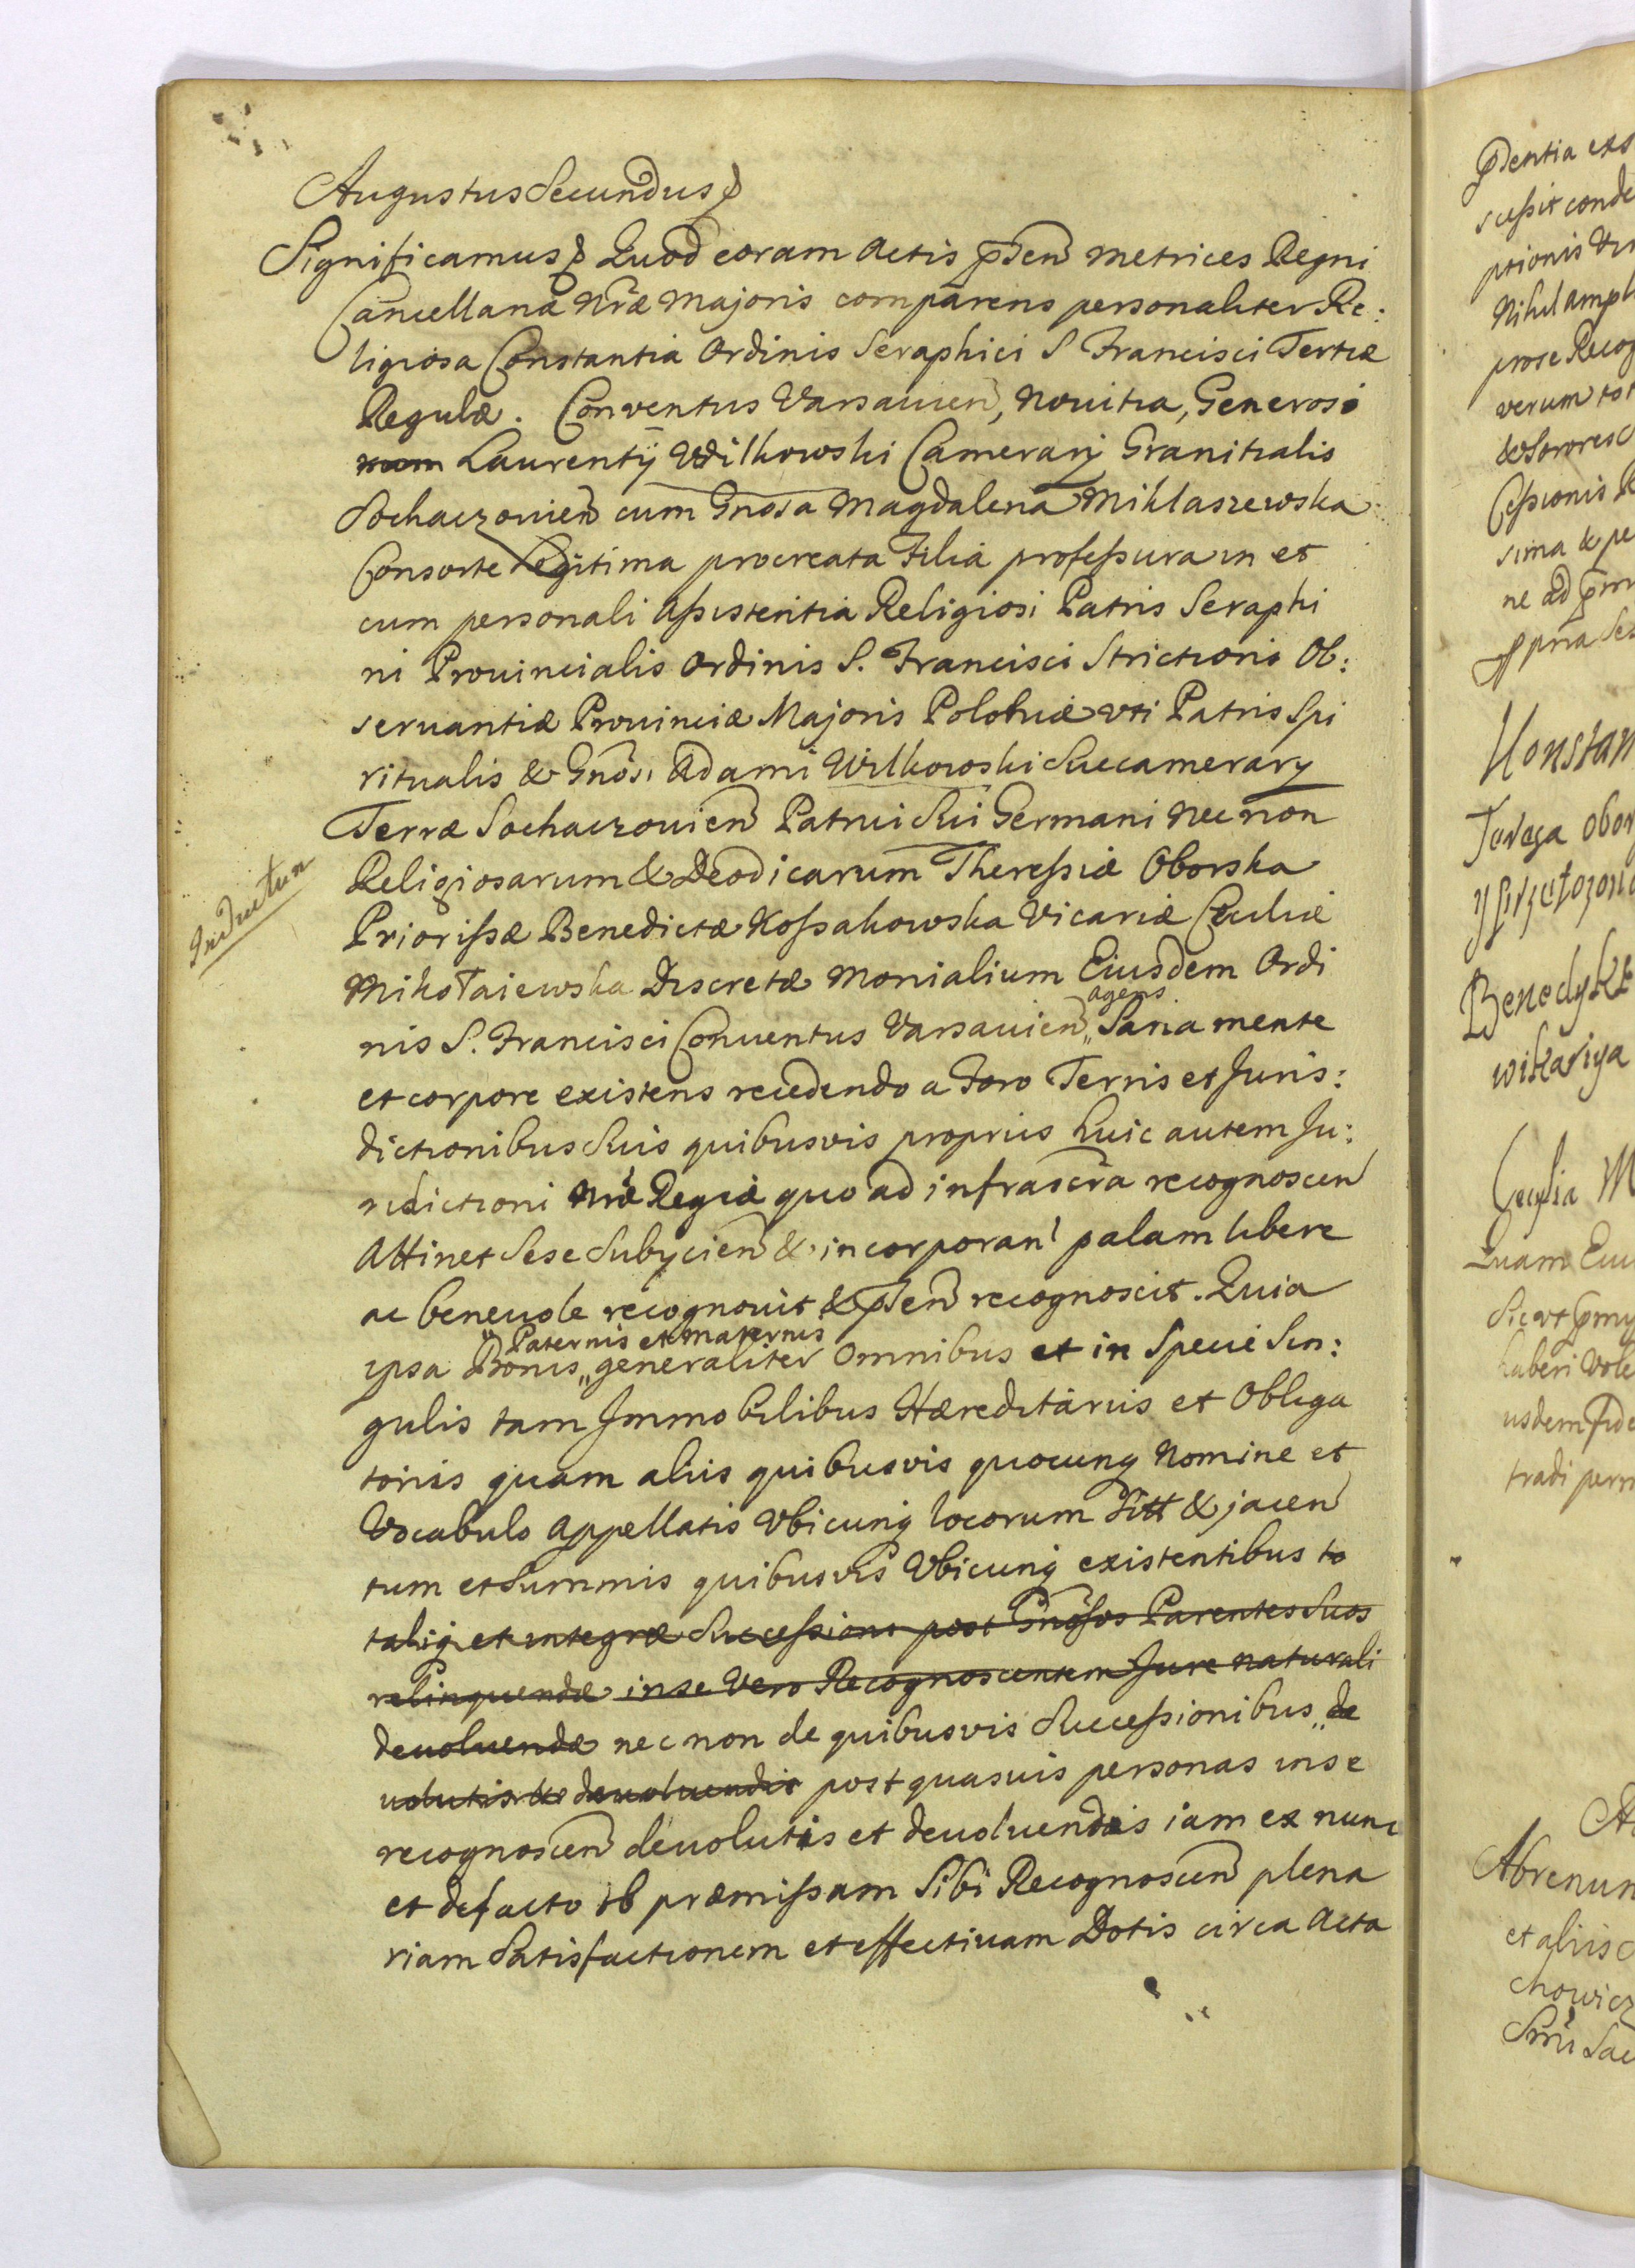 Augustus Secundus
Significamus Quod coram Actis pñten Metrices Regni
Cancellariæ Nræ Majoris comparens personaliter Re:
ligiosa Constantia Ordinis Seraphici S Francisci Tertiæ
Regulæ. Conventus Varsauien, Nouitia, Generosi
Laurentÿ Wilkowski Camerarÿ Granitialis
Sochaczouien cum Gnosa Magdalena Miklaszewska
Consorte Legitima procreata Filia professura in et
cum personali Assistentia Religiosi Patris Seraphi
ni Prouincialis Ordinis S. Francisci Strictioris Ob:
seruantiæ Prouinciæ Majoris Poloniæ vti Patris Spi
ritualis & Gnosi Adami Wilkowski Succamerarÿ
Terræ Sochaczouien Patrui Sui Germani Nec non
Religiosarum & Deodicarum Theressiæ Oborska
Inductum
Priorissæ Benedictæ Kossakowska Vicariæ Ceciliæ
Mikołaiewska Discretæ Monialium Eiusdem Ordi
nis S. Francisci Conuentus Varsauien,, agens Sana mente
et corpore existens recedendo a Foro Terris et Juris:
dictionibus Suis quibusvis proprius huic autem Ju:
risdictioni Nræ Regiæ quo ad infrascra recognoscen
Attinet Sese Subÿcien & incorporan palam libere
ac beneuole recognouit & pñten recognoscit. Quia
ipsa Bonis,, Paternis et Maternis generaliter Omnibus et in Specie Sin:
gulis tam Immobilibus Hæreditariis et Obliga
toriis quam aliis quibusvis quocunq Nomine et
Vocabulo Appellatis Vbicunq locorum Sitt & jacen
tum et Summis quibusvis Vbicunq existentibus to
taliq et integræ Successioni post Gnosos Parentes Suos
relinquendæ in se Vero Recognoscentem Jure naturali
deuoluendæ nec non de quibusvis Successionibus,, de
uolutis & deuoluendis post quasuis personas in se
recognoscen deuolutis et deuoluendis iam ex nunc
et de facto ob præmissam Sibi Recognoscen plena
riam Satisfactionem et effectiuam Dotis circa Acta
Konstan
Benedykt
wikariya
Abrenun
et aliis